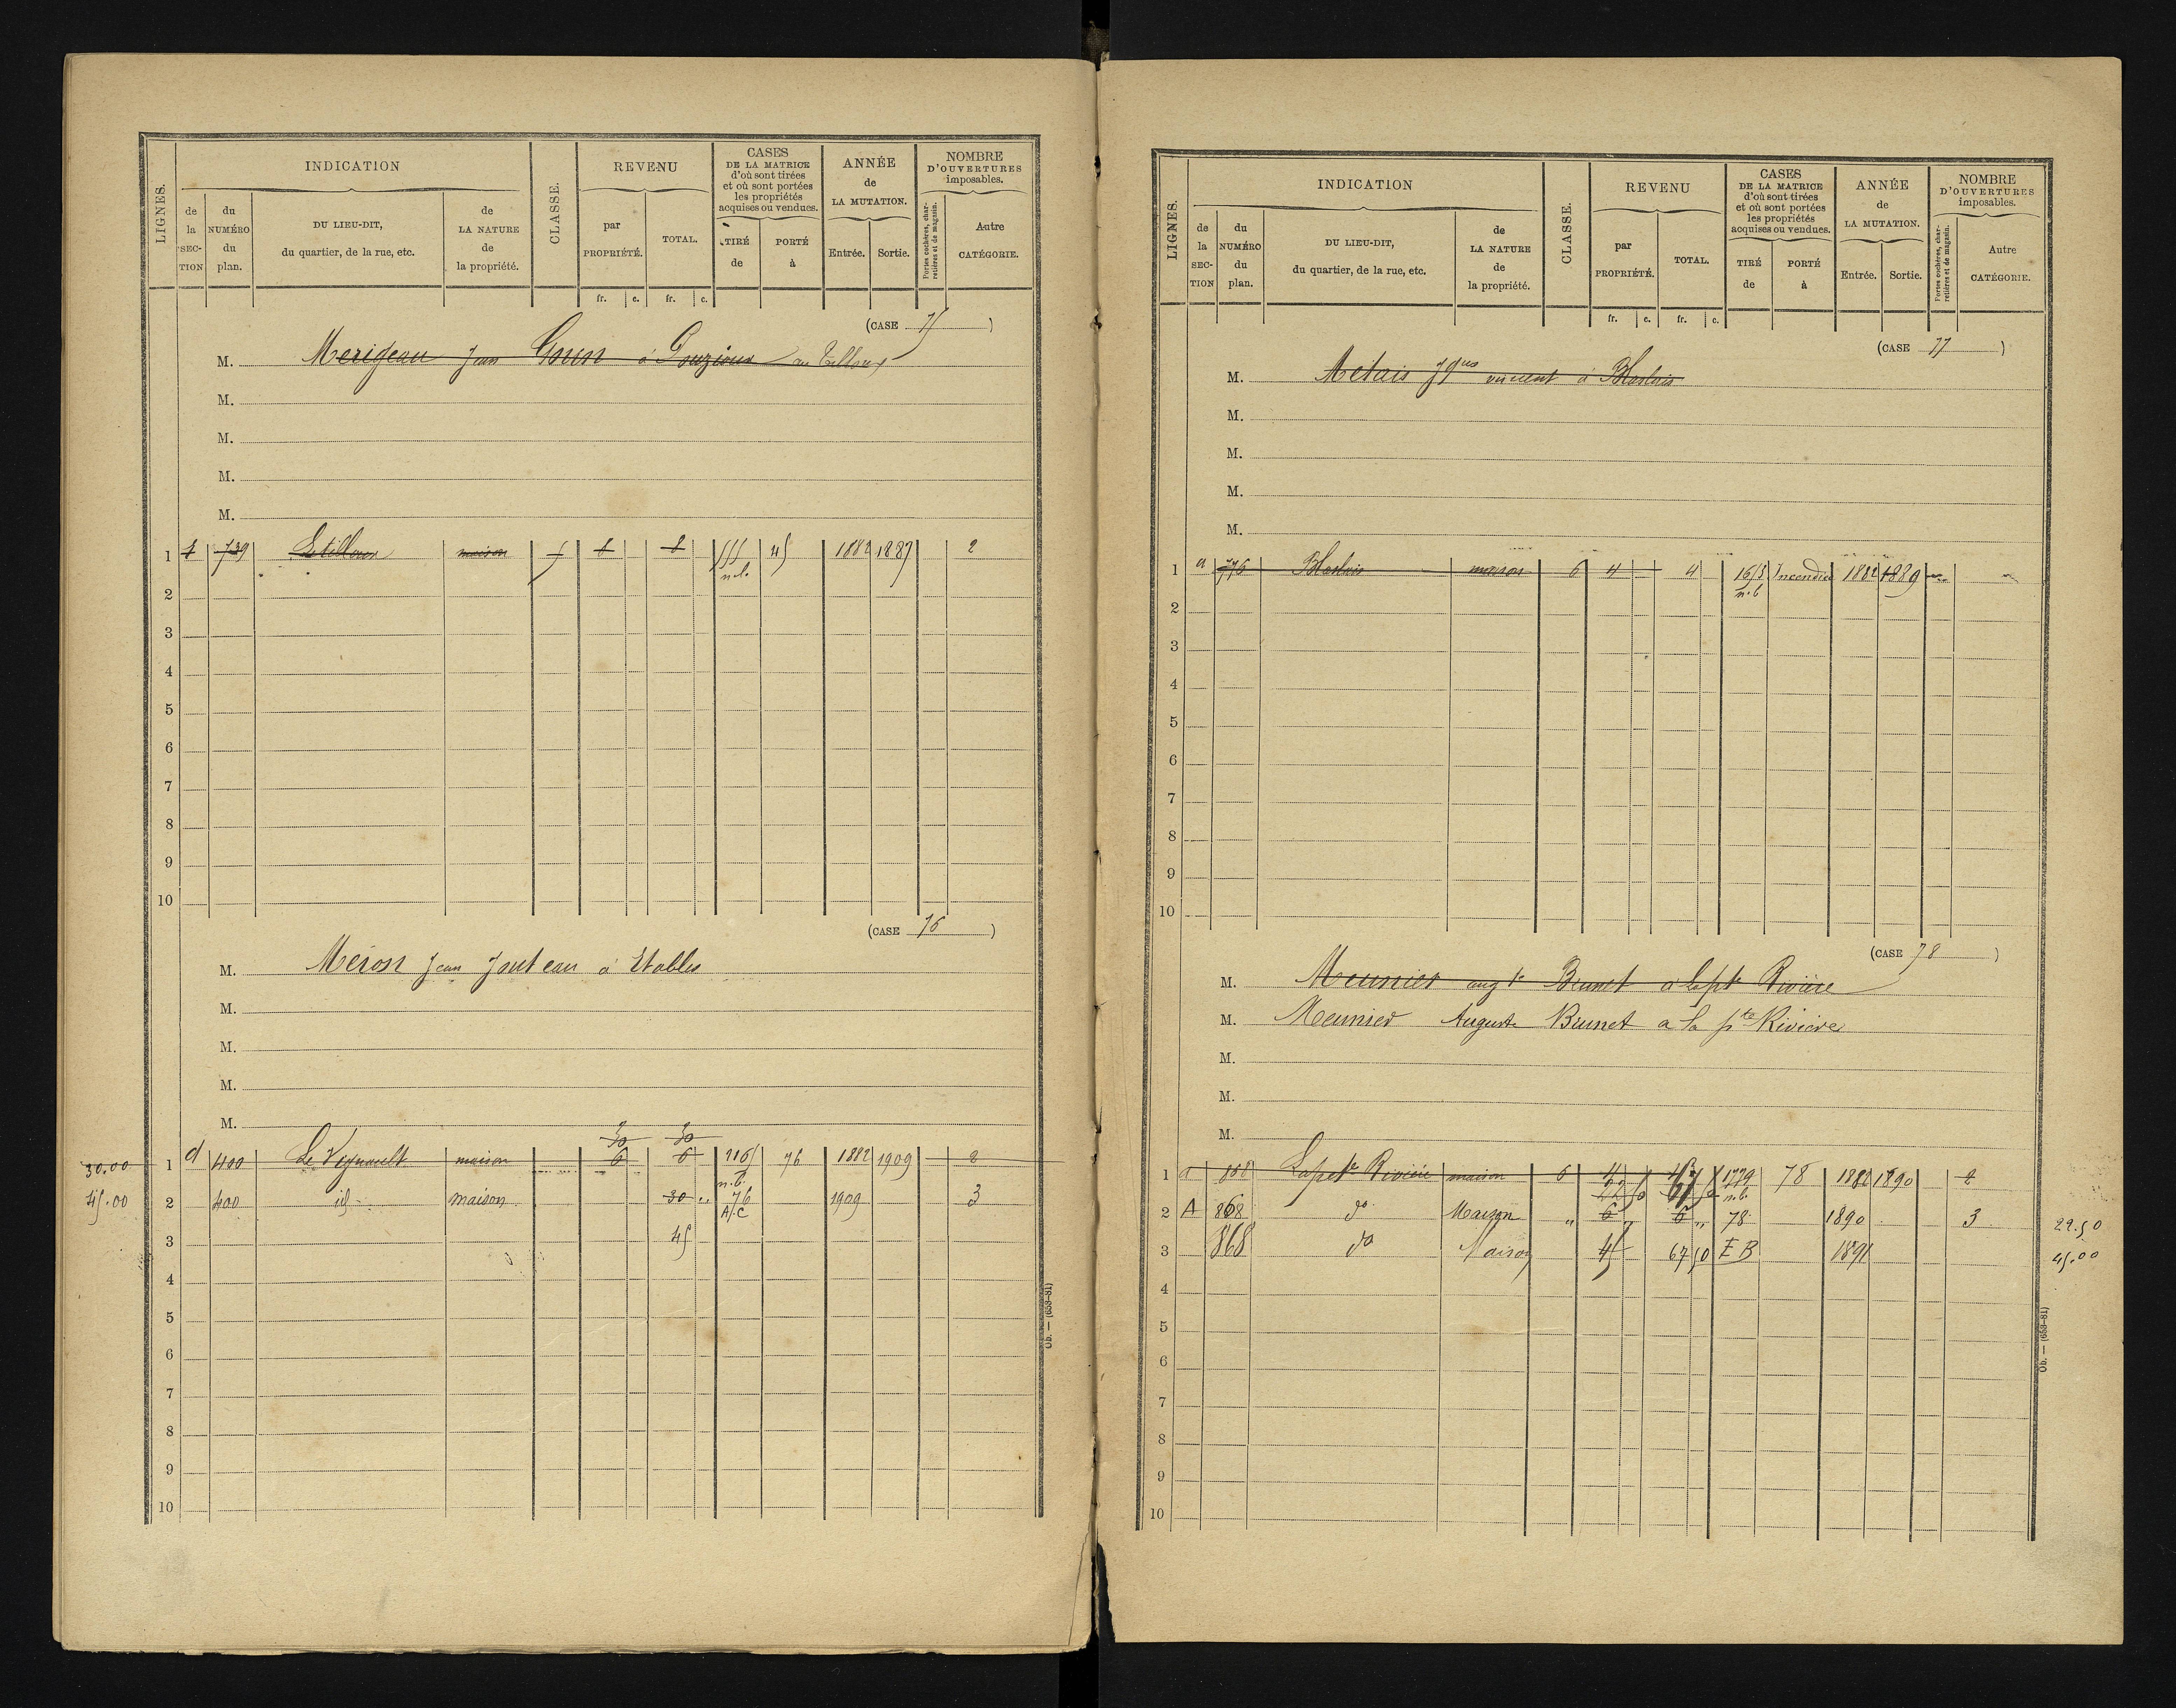 LIGNES.
INDICATION
de la SECTION
du NUMÉRO du plan.
DU LIEU-DIT, du quartier, de la rue, etc.
de LA NATURE de la propriété.
CLASSE.
REVENU
par PROPRIÉTÉ.
TOTAL.
CASES DE LA MATRICE d'où sont tirées et où sont portées les propriétés acquises ou vendues.
TIRÉ de
PORTÉ à
ANNÉE de LA MUTATION.
Entrée.
Sortie.
NOMBRE D'OUVERTURES imposables.
Portes cochères, charretières et de magasin.
Autre CATÉGORIE.
fr. c. fr. c.
(CASE 75)
M. Merigeau Jean Gorin à Pouzioux au Tilloux
M.
M.
M.
M.
1 739 maison 8 8 n.b. 45 1882 1887 2
2
3
4
5
6
7
8
9
10
(CASE 76)
M. Méron Jean Jouteau à Etables
M.
M.
M.
M.
30 30
30.00 1 d 400 Le Vignault maison 6 6 216 n.b. 76 1882 1909 2
45.00 2 400 id maison 30 76 A.C 1909 3
3 45
4
5
6
7
8
9
10
Ob. — (653-81)
LIGNES.
INDICATION
de la SECTION
du NUMÉRO du plan.
DU LIEU-DIT, du quartier, de la rue, etc.
de LA NATURE de la propriété.
CLASSE.
REVENU
par PROPRIÉTÉ.
TOTAL.
CASES DE LA MATRICE d'où sont tirées et où sont portées les propriétés acquises ou vendues.
TIRÉ de
PORTÉ à
ANNÉE de LA MUTATION.
Entrée.
Sortie.
NOMBRE D'OUVERTURES imposables.
Portes cochères, charretières et de magasin.
Autre CATÉGORIE.
fr. c. fr. c.
(CASE 77)
M. Metais Jques vincent à Blaslais
M.
M.
M.
M.
1 a 776 Blaslais maison 6 4 4 n.b Incendie 1882 1889
2
3
4
5
6
7
8
9
10
(CASE 78)
M. Meunier augte Brunet a la pte Rivière
M. Meunier Auguste Brunet a la pte Rivière
M.
M.
M.
1 a 868 La pete Rivière maison 6 1779 n.b. 78 1882 1890 2
2 A 868 do Maison " 6 " 6 " 78 1890 3 22.50
3 868 do Maison 45 67 50 E B 1891 45.00
4
5
6
7
8
9
10
Ob. — (653-81)